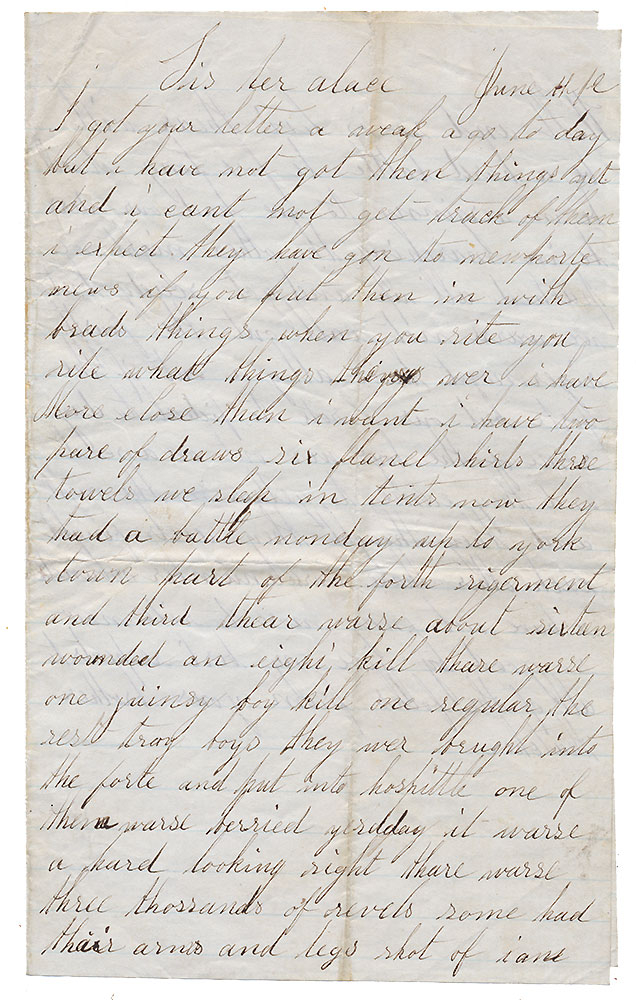 Sis ter alace June
I got your letter a weak ago to day
but i have not got then things yit
and i cant not get track of them
i expect they have gon to newporte
news if you put then in with
brads things when you rite you
rite what things wer i have
More close than i want i have two
pare of draws six flanel shirts three
towels we slep in tents now they
had a battle monday up to york
town part of the forth rigerment
and third thear warse about sixteen
wounded an eight kill thare warse
one quinsy boy kill one regular the
rest troy boys they wer brught into
the forte and put into hospittle one of
them warse berried yerdday it warse
a hard looking sight thare warse
three thossands of revels some had
thair arms and legs shot of